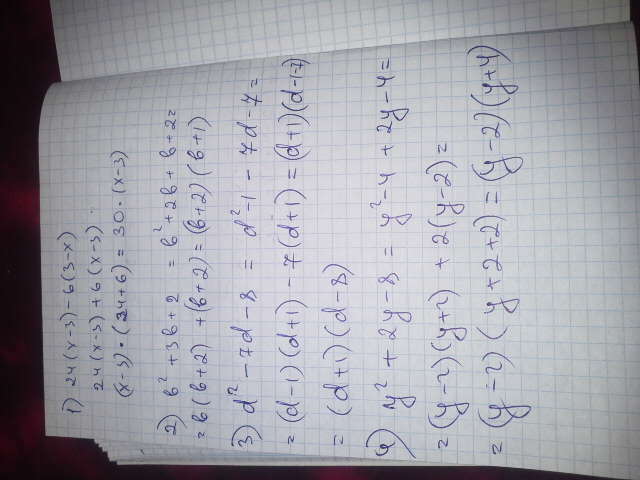 1) 24(x-3)-6(3-x)
24(x-3)+6(x-3)
(x-3)·(24+6)=30·(x-3)
2) b²+3b+2 = b²+2b+b+2=
=b(b+2)+(b+2)=(b+2)(b+1)
3) d²-7d-8 = d²-1-7d-7=
=(d-1)(d+1)-7(d+1)=(d+1)(d-1-7)
=(d+1)(d-8)
4) y²+2y-8 = y²-4+2y-4=
=(y-2)(y+2)+2(y-2)=
=(y-2)(y+2+2)=(y-2)(y+4)